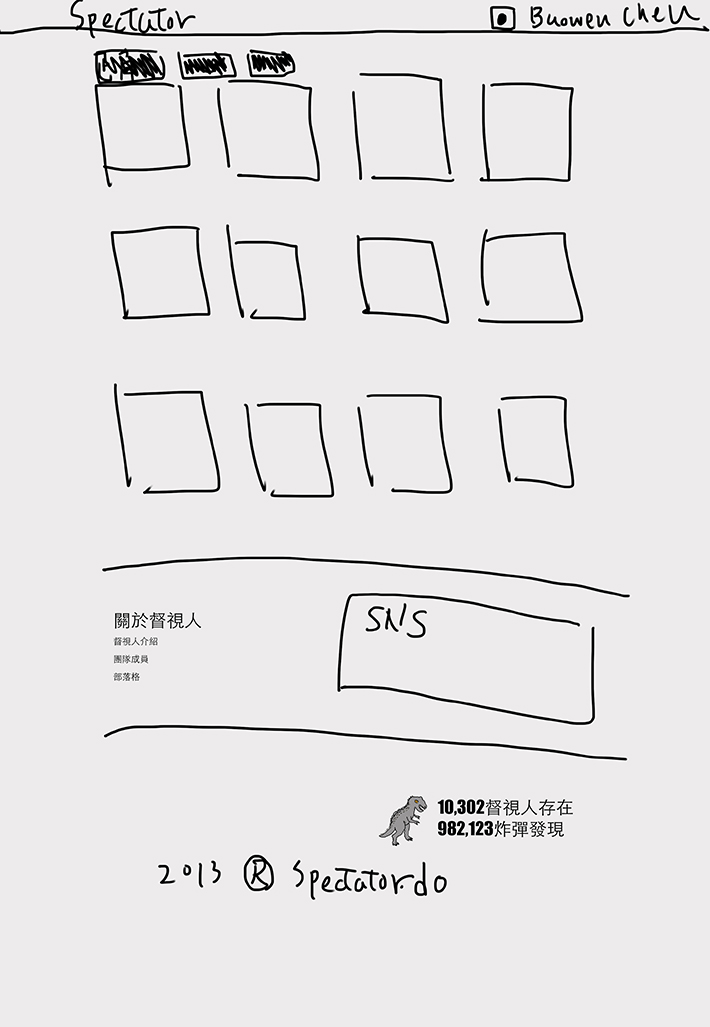 Spectator
Buowen Chen
關於督視人
督視人介紹
團隊成員
部落格
SNS
10,302督視人存在
982,123炸彈發現
2013 ® Spectator.do